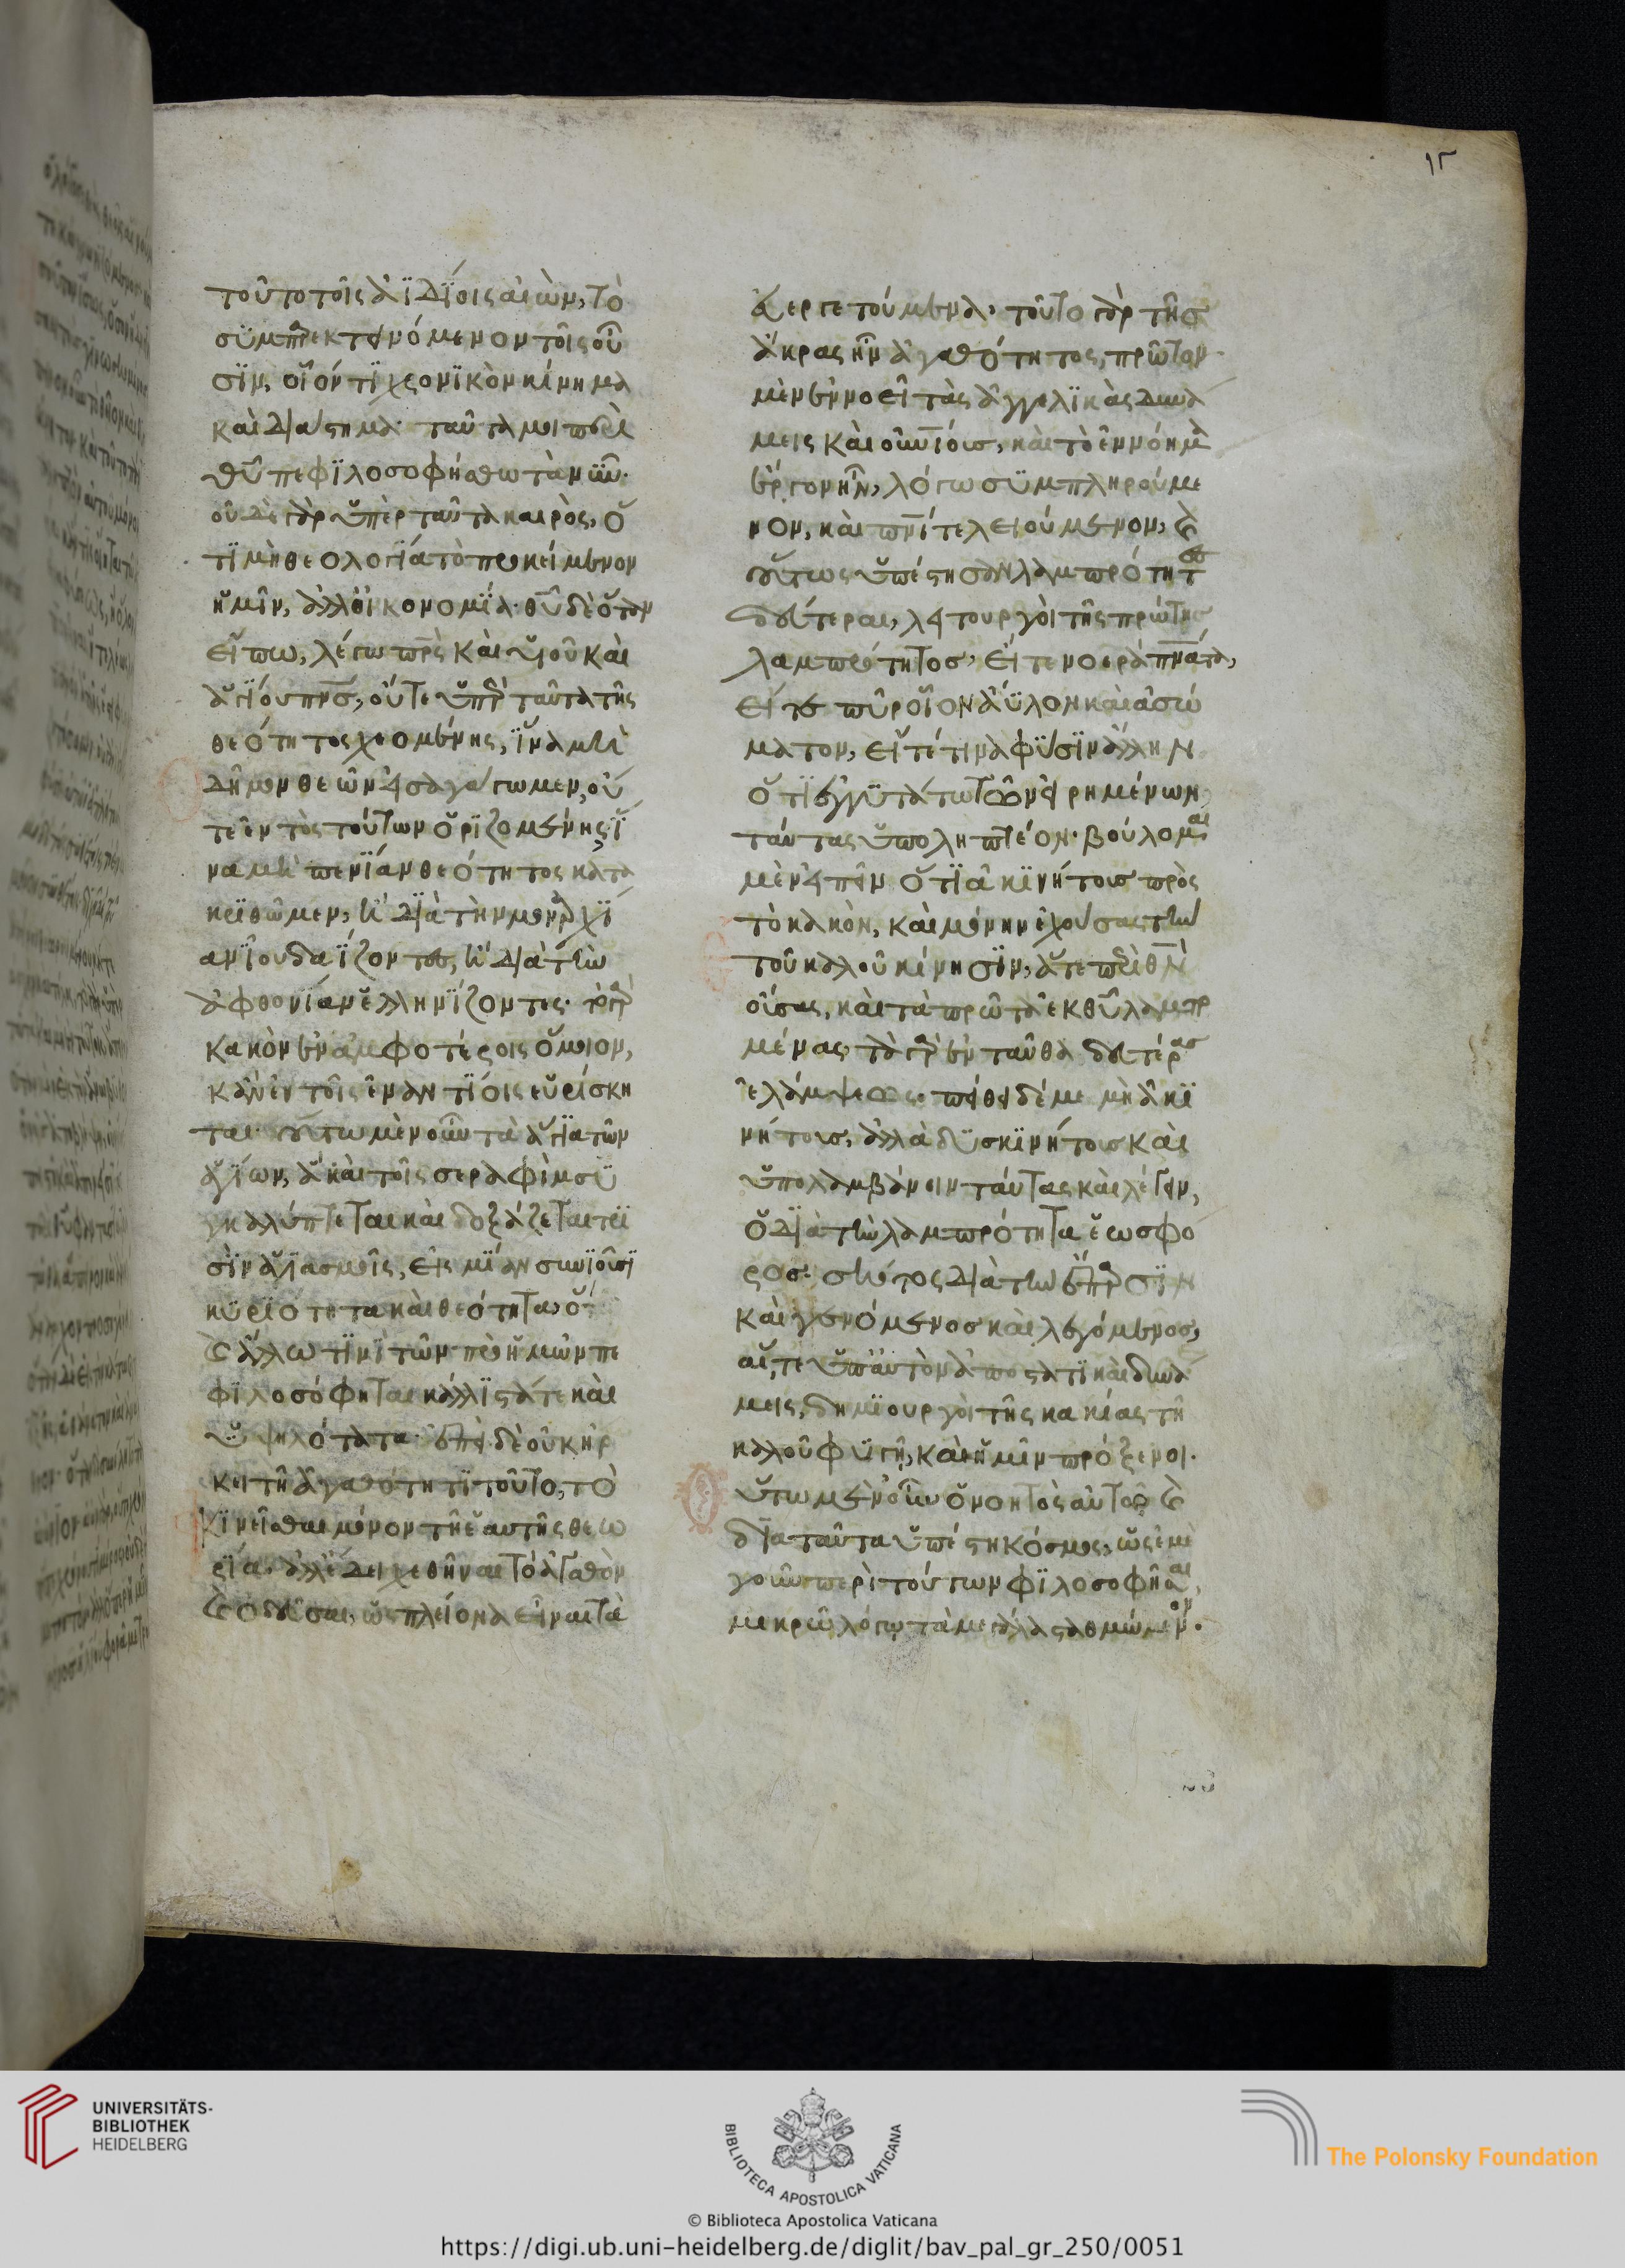 τοῦτο τοῖς ἀϊδΐοις αἰὼν, τὸ
συμπαρεκτεινόμενον τοῖς οὖ
σϊν, οἷόν τϊ χρονϊκὸν κίνημα
καὶ διάστημα· ταῦτα μοι περὶ
θῦ πεφϊλοσοφήσθω τανῦν·
οὐδὲ γὰρ ὑπὲρ ταῦτα καιρὸς, ὅ
τϊ μὴ θεολογία τὸ προκείμενον
ἡμῖν, ἀλλ' οἰκονομΐα· θῦ δὲ ὅταν
εἴπω, λέγω πρς καὶ υἱοῦ καὶ
ἁγίου πνς, οὔτε ὑπὲρ ταῦτα τῆς
θεότητος χεομένης, ἵνα μὴ
δῆμον θεῶν εἰσαγάγωμεν, οὔ
τε ἐντὸς τούτων ὁρϊζομένης, ἵ
να μὴ πενΐαν θεότητος κατα
κρϊθῶμεν, ἢ διὰ τὴν μοναρχΐ
αν ἰουδαΐζοντες, ἢ διὰ τὴν
ἀφθονΐαν ἑλληνΐζοντες· τὸ γὰρ
κακὸν ἐν ἀμφοτέροις ὅμοιον,
κἂν ἐν τοῖς ἐναντΐοις εὑρίσκη
ται· οὕτω μὲν οὖν τὰ ἅγια τῶν
ἁγΐων, ἃ καὶ τοῖς σεραφὶμ συ
γκαλύπτεται καὶ δοξάζεται τρϊ
σὶν ἁγϊασμοῖς, εἰς μΐαν συνϊοῦσϊ
κυρϊότητα καὶ θεότητα, ὃ
καὶ ἄλλω τϊνὶ τῶν πρὸ ἡμῶν πε
φϊλοσόφηται κάλλϊστά τε καὶ
ὑψηλότατα· ἐπεὶ δὲ οὐκ ἤρ
κει τῆ ἀγαθότητϊ τοῦτο, τὸ
κϊνεῖσθαι μόνον τῆ ἑαυτῆς θεω
ρΐα, ἀλλ' ἔδει χεθῆναι τὸ ἀγαθὸν
καὶ ὁδεῦσαι, ὡς πλείονα εἶναι τὰ
εὐεργετούμενα, τοῦτο γὰρ τῆς
ἄκρας ἦν ἀγαθότητος, πρῶτον
μὲν ἐννοεῖ τὰς ἀγγελϊκὰς δυνά
μεις καὶ οὐνΐους, καὶ τὸ ἐννόημα
ἔργον ἦν, λόγω συμπληρούμε
νον, καὶ πνΐ τελειούμενον, καὶ
οὕτως ὑπέστησαν λαμπρότητες
δεύτεραι, λειτουργοὶ τῆς πρώτης
λαμπρότητος, εἴτε νοερὰ πνάτα,
εἴτε πῦρ οἷον ἄϋλον καὶ ἀσώ
ματον, εἴτέ τινα φύσϊν ἄλλην
ὅτϊ ἐγγυτάτω τῶν εἰρημένων
ταύτας ὑποληπτέον· βούλομαι
μὲν εἰπεῖν ὅτϊ ἀκϊνήτους πρὸς
τὸ κακὸν, καὶ μόνην ἐχούσας τὴν
τοῦ καλοῦ κίνησϊν, ἅτε περὶ θν
οὔσας, καὶ τὰ πρῶτα ἐκ θῦ λαμπρ
μένας, τὰ γὰρ ἐνταῦθα δευτέρας
ἐλλάμψεως· πείθει δέ με μὴ ἀκϊ
νήτους, ἀλλὰ δυσκϊνήτους καὶ
ὑπολαμβάνειν ταύτας καὶ λέγειν,
ὁ διὰ τὴν λαμπρότητα ἑωσφό
ρος· σκότος διὰ τὴν ἔπαρσϊν
καὶ γενόμενος καὶ λεγόμενος,
αἵ τε ὑπ' αὐτὸν ἀποστατϊκαὶ δυνά
μεις, δημϊουργοὶ τῆς κακίας τῆ
καλοῦ φυγῆ, καὶ ἡμῖν πρόξενοι·
Οὕτω μὲν οὖν ὁ νοητὸς αὐτῶ καὶ
δϊὰ ταῦτα ὑπέστη κόσμος, ὡς ἐμὲ
γοῦν περὶ τούτων φϊλοσοφῆσαι,
μικρῶ λόγω τὰ μεγάλα σταθμώμενον·
UNIVERSITÄTS-
BIBLIOTHEK
HEIDELBERG
BIBLIOTECA APOSTOLICA VATICANA
The Polonsky Foundation
© Biblioteca Apostolica Vaticana
https://digi.ub.uni-heidelberg.de/diglit/bav_pal_gr_250/0051